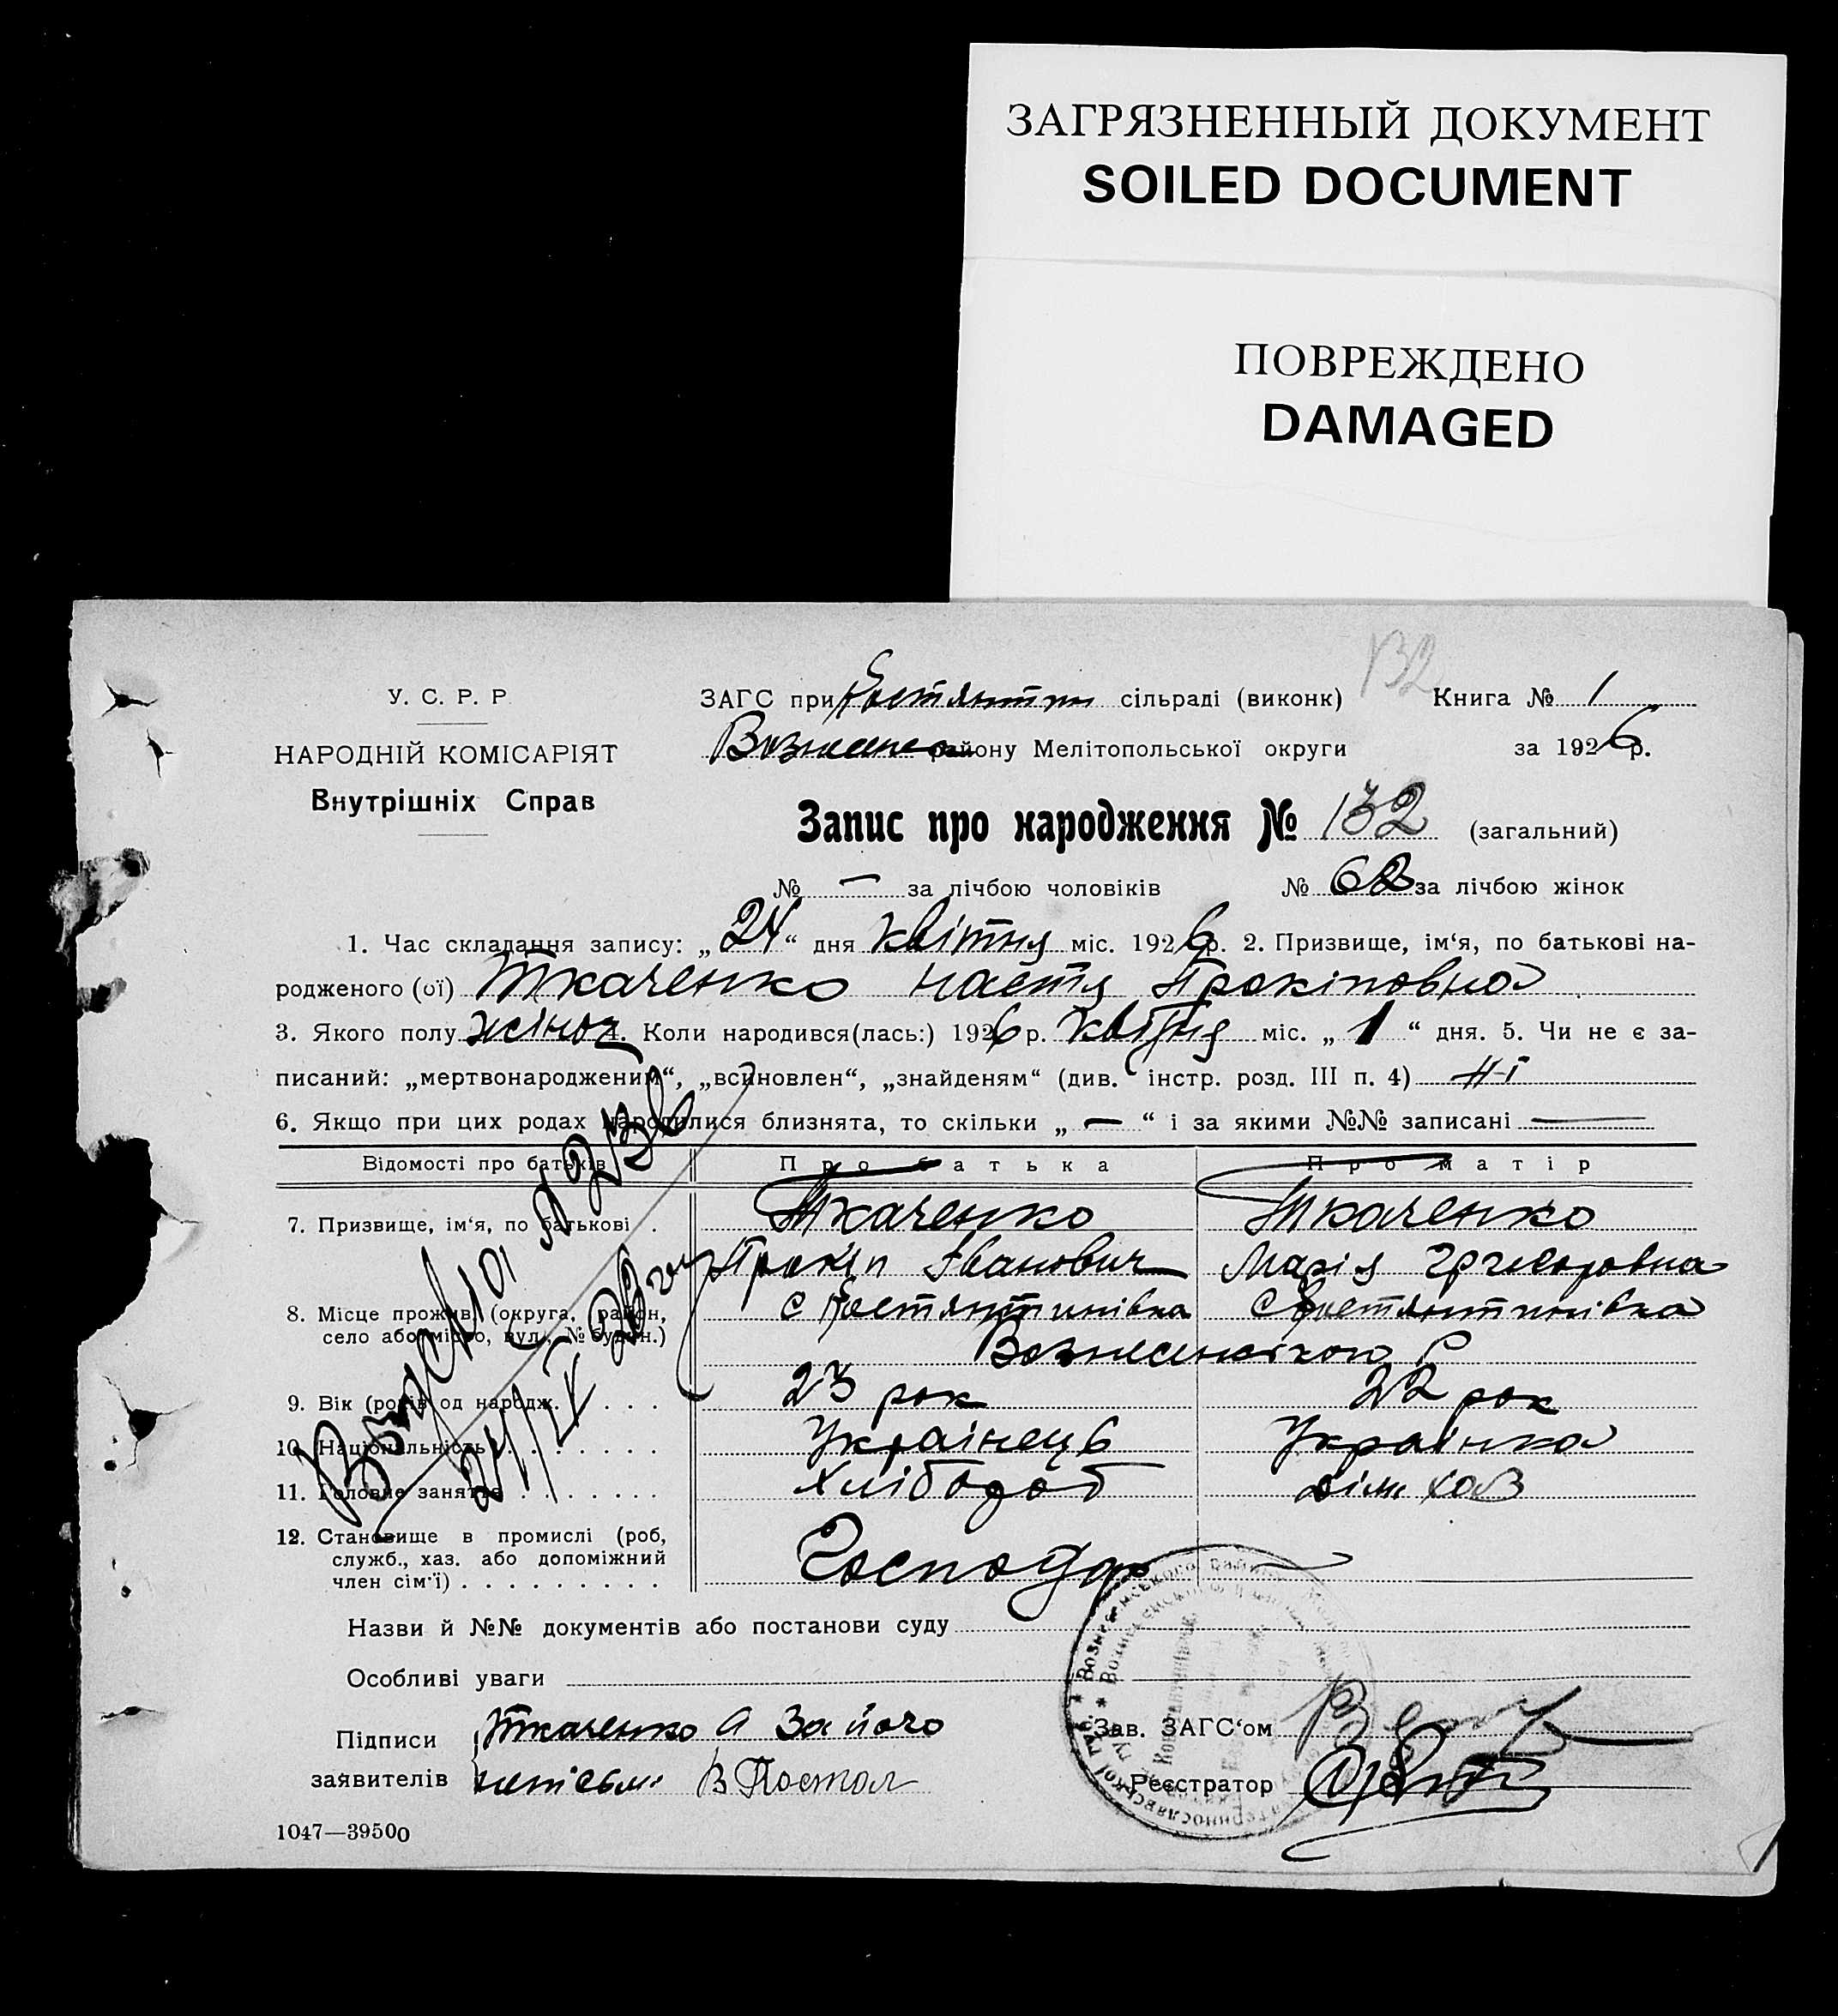 ЗАГРЯЗНЕННЫЙ ДОКУМЕНТ
SOILED DOCUMENT
ПОВРЕЖДЕНО
DAMAGED
132
У. С. Р. Р.
НАРОДНІЙ КОМІСАРІЯТ
Внутрішніх Справ
ЗАГС при Костянтин сільраді (виконк) Книга № 1
Вознесен району Мелітопольської округи за 1926 р.
Запис про народження № 132 (загальний)
№ — за лічбою чоловіків № 62 за лічбою жінок
1. Час складання запису: „24“ дня квітня міс. 1926 р. 2. Призвище, ім‘я, по батькові на-
родженого (ої) Ткаченко Настя Прокіповна
3. Якого полу жіноч 4. Коли народився(лась:) 1926 р. квітня міс. „1“ дня. 5. Чи не є за-
писаний: „мертвонародженим“, „всиновлен“, „знайденям“ (див. інстр. розд. III п. 4) Ні
6. Якщо при цих родах народилися близнята, то скільки „—“ і за якими №№ записані —
Відомості про батьків Про батька Про матір
7. Призвище, ім‘я, по батькові . Ткаченко Ткаченко
Прокіп Іванович Марія Григоровна
8. Місце прожив. (округа, район, с Костянтинівка с Костянтинівка
село або місто, вул., № будин.)
Вознесенского Р
9. Вік (років од народж. . . . 23 рок 22 рок
10. Національність . . . . . . . Українець Українка
11. Головне заняття . . . . . . . Хлібороб дім хоз
12. Становище в промислі (роб,
служб., хаз. або допоміжний Господар —
член сім‘ї) . . . . . . . . .
24/IV
Назви й №№ документів або постанови суду
Особливі уваги
Підписи Ткаченко А За його
заявителів В Постол
Зав. ЗАГС‘ом
Реєстратор
1047—39500